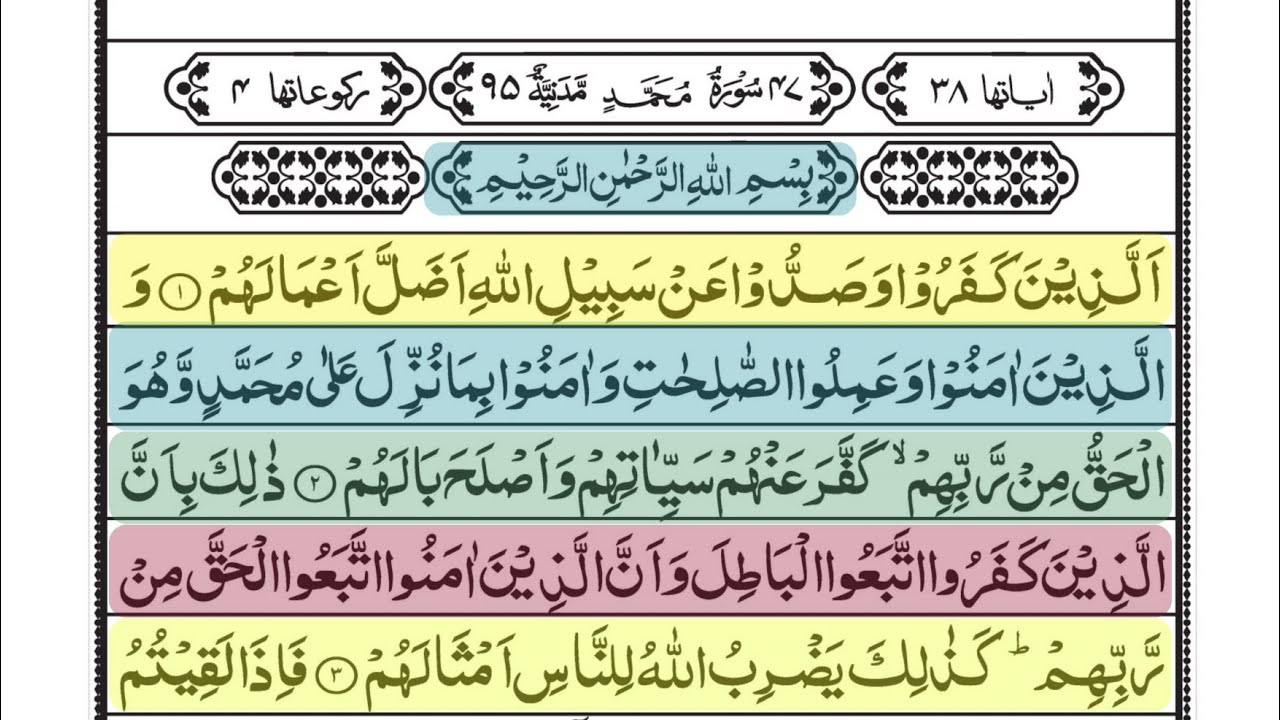 اٰیاتها ۳۸ ۴۷ سُوْرَةُ مُحَمَّدٍ مَّدَنِیَّةٌ ۹۵ رکوعاتها ۴
بِسْمِ اللهِ الرَّحْمٰنِ الرَّحِیْمِ
اَلَّذِیْنَ كَفَرُوْا وَصَدُّوْا عَنْ سَبِیْلِ اللهِ اَضَلَّ اَعْمَالَهُمْ ۝۱ وَ
الَّذِیْنَ اٰمَنُوْا وَعَمِلُوا الصّٰلِحٰتِ وَاٰمَنُوْا بِمَا نُزِّلَ عَلٰى مُحَمَّدٍ وَّهُوَ
الْحَقُّ مِنْ رَّبِّهِمْ ۙ كَفَّرَ عَنْهُمْ سَیِّاٰتِهِمْ وَاَصْلَحَ بَالَهُمْ ۝۲ ذٰلِكَ بِاَنَّ
الَّذِیْنَ كَفَرُوا اتَّبَعُوا الْبَاطِلَ وَاَنَّ الَّذِیْنَ اٰمَنُوا اتَّبَعُوا الْحَقَّ مِنْ
رَّبِّهِمْ ؕ كَذٰلِكَ یَضْرِبُ اللهُ لِلنَّاسِ اَمْثَالَهُمْ ۝۳ فَاِذَا لَقِیْتُمُ